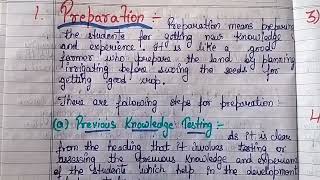 1. Preparation :- Preparation means preparing
the students for getting new knowledge
and experience. It is like a good
farmer who prepare the land by planning
irrigating before swing the seeds for
getting good crop.
There are following steps for preparation
(a) Previous Knowledge Testing :-
As it is clear
from the heading that it involves testing or
assessing the previous knowledge and experience
of the student which help in the development
3)
4